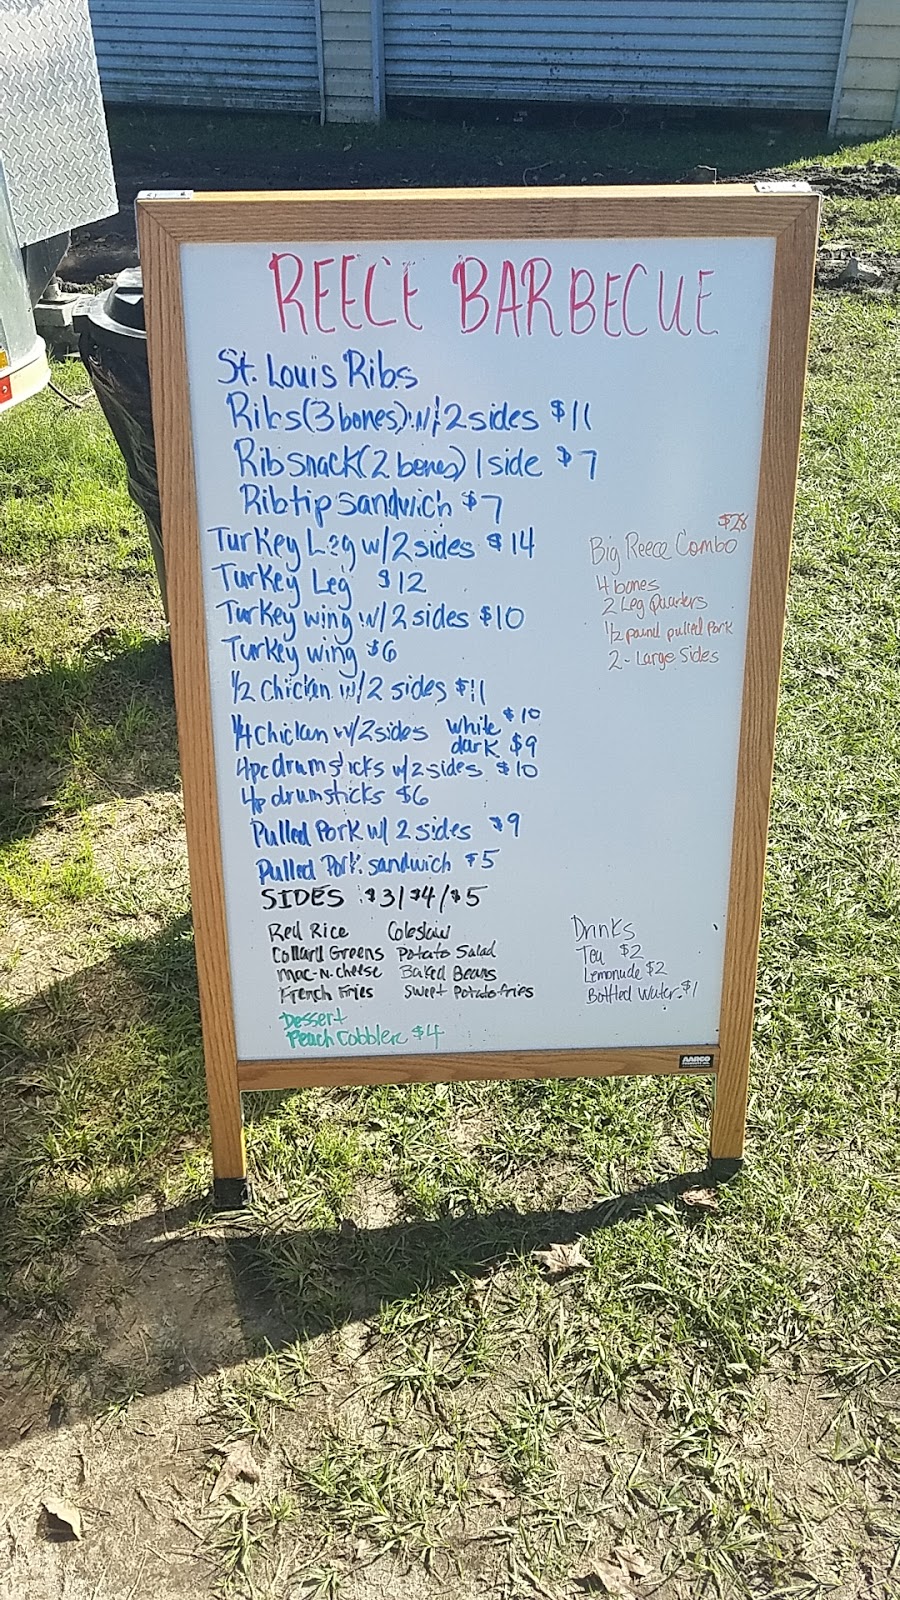 REECE BARBECUE
St. Louis Ribs
Ribs (3 bones) w/ 2 sides $11
Rib snack (2 bones) 1 side $7
Rib tip sandwich $7
Turkey Leg w/ 2 sides $14
Turkey Leg $12
Turkey wing w/ 2 sides $10
Turkey wing $6
1/2 chicken w/ 2 sides $11
1/4 chicken w/ 2 sides white $10
dark $9
4pc drumsticks w/ 2 sides $10
4p drumsticks $6
Pulled Pork w/ 2 sides $9
Pulled Pork sandwich $5
SIDES $3/$4/$5
Red Rice Coleslaw
Collard Greens Potato Salad
Mac-N-Cheese Baked Beans
French Fries Sweet Potato fries
Dessert
Peach Cobbler $4
$28
Big Reece Combo
4 bones
2 Leg Quarters
1/2 pound pulled Pork
2 - Large Sides
Drinks
Tea $2
Lemonade $2
Bottled Water $1
AARCO